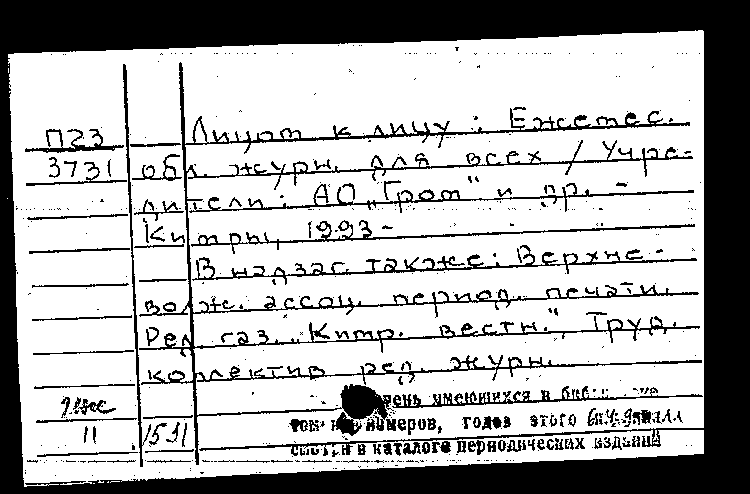 П23 Лицом к лицу : Ежемес.
3731 обл. журн. для всех / Учре-
дители : АО „Гром" и др. -
Кимры, 1993-
В надзаг. также : Верхне-
волж. ассоц. период. печати.
Ред. газ. „Кимр. вестн.", Труд.
коллектив ред. журн.
имеющихся в
номеров, годов этого
11 1591
в каталоге периодических изданий